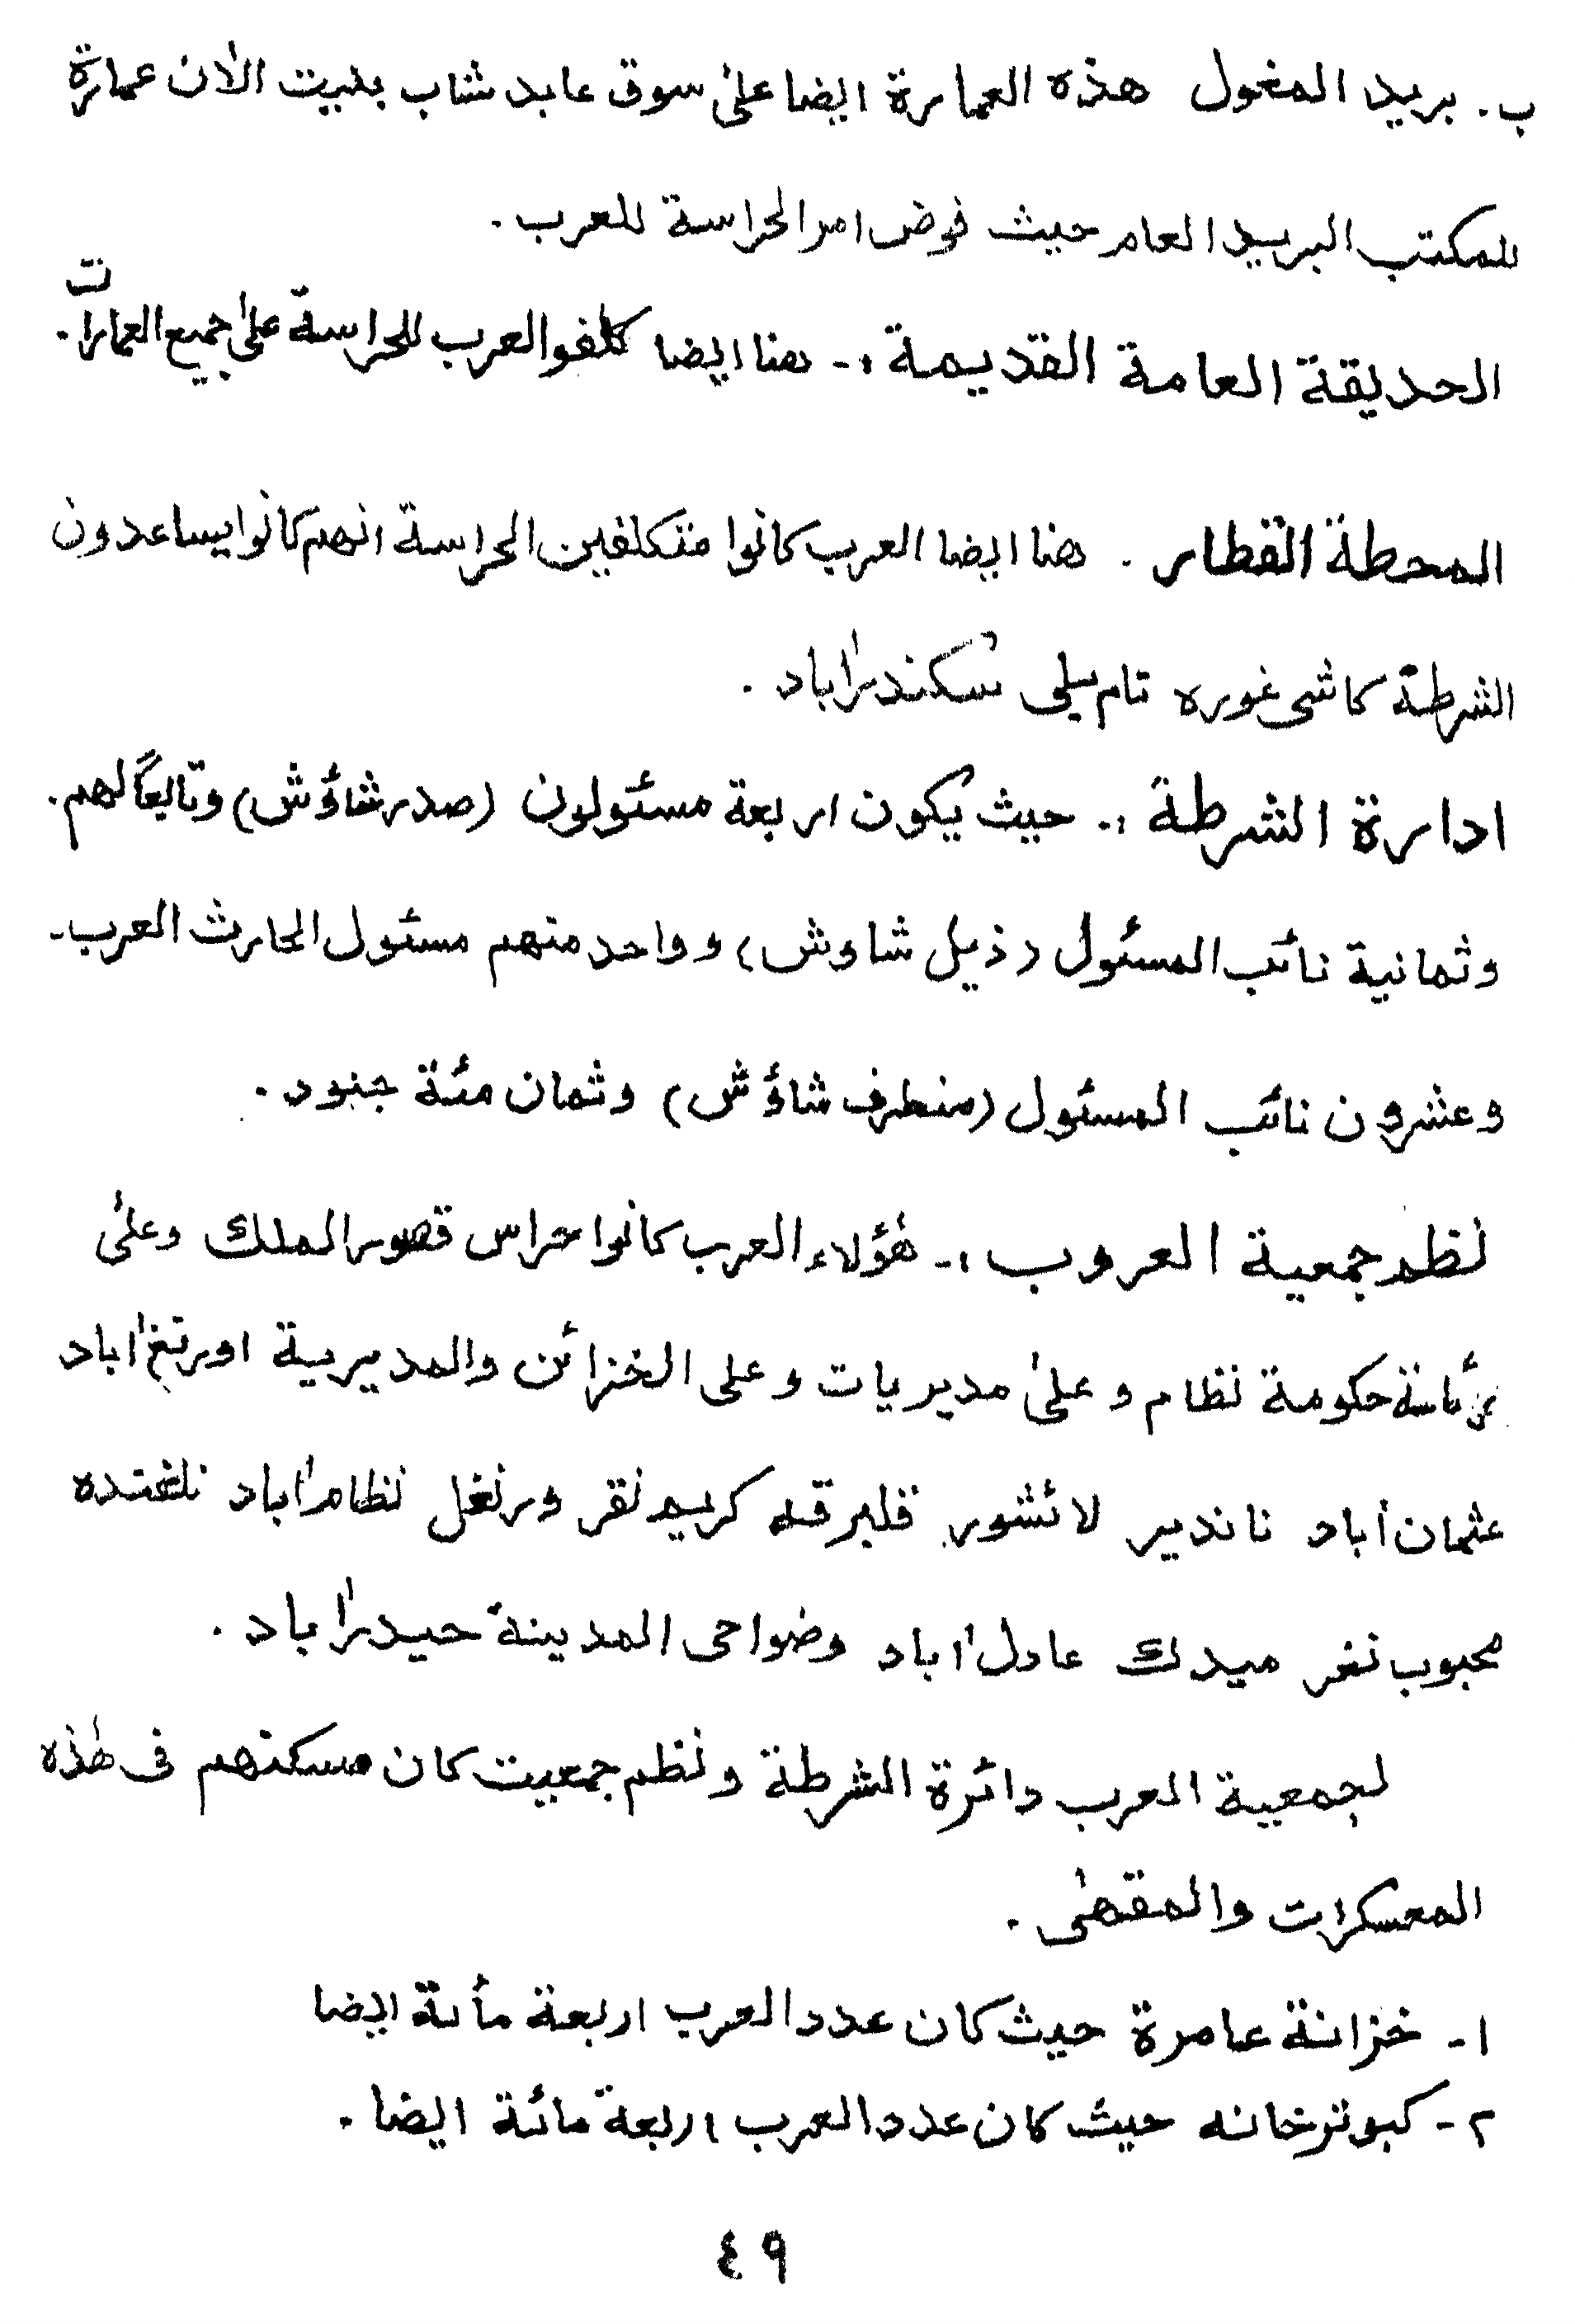 ب. بريد المغول هذه العمارة ايضا علىٰ سوق عابد شاب بنيت الاٰن عمارة
للمكتب البريد العام حيث فوض امر الحراسة للعرب.
الحديقة العامة القديمة :- هنا ايضا كلفو العرب للحراسة علىٰ جميع العمارات.
المحطة القطار . هنا ايضا العرب كانوا متكلفين الحراسة انهم كانوا يساعدون
الشرطة كاشى غوره تام بيلى سكندرآباد .
ادارة الشرطة :. حيث يكون اربعة مسئولون (صدر شاؤش) وتابعًا لهم.
وثمانية نائب المسئول (ذيل شاوش) و واحد منهم مسئول الحارث العرب-
وعشرون نائب المسئول (منطرف شاؤش) وثمان مئة جنود .
نظم جمعية العروب :- هٰؤلاء العرب كانوا حراس قصور الملك وعلىٰ
رئاسة حكومة نظام و علىٰ مديريات و على الخزائن والمديرية اورنغ اٰباد
عثمان اٰباد نانديىر لائشور قلبرقه كريم نقر ورنغل نظام اٰباد نلغنده
محبوب نغر ميدك عادل اٰباد وضواحى المدينة حيدرآباد .
لجمعية العرب دائرة الشرطة ونظم جمعيت كان مسكنهم فى هٰذه
المعسكرات والمقهىٰ .
١- خزانة عامرة حيث كان عدد العرب اربعة مأىة ايضا
٢- كبوترخانه حيث كان عدد العرب اربعة مائة ايضا .
٤٩